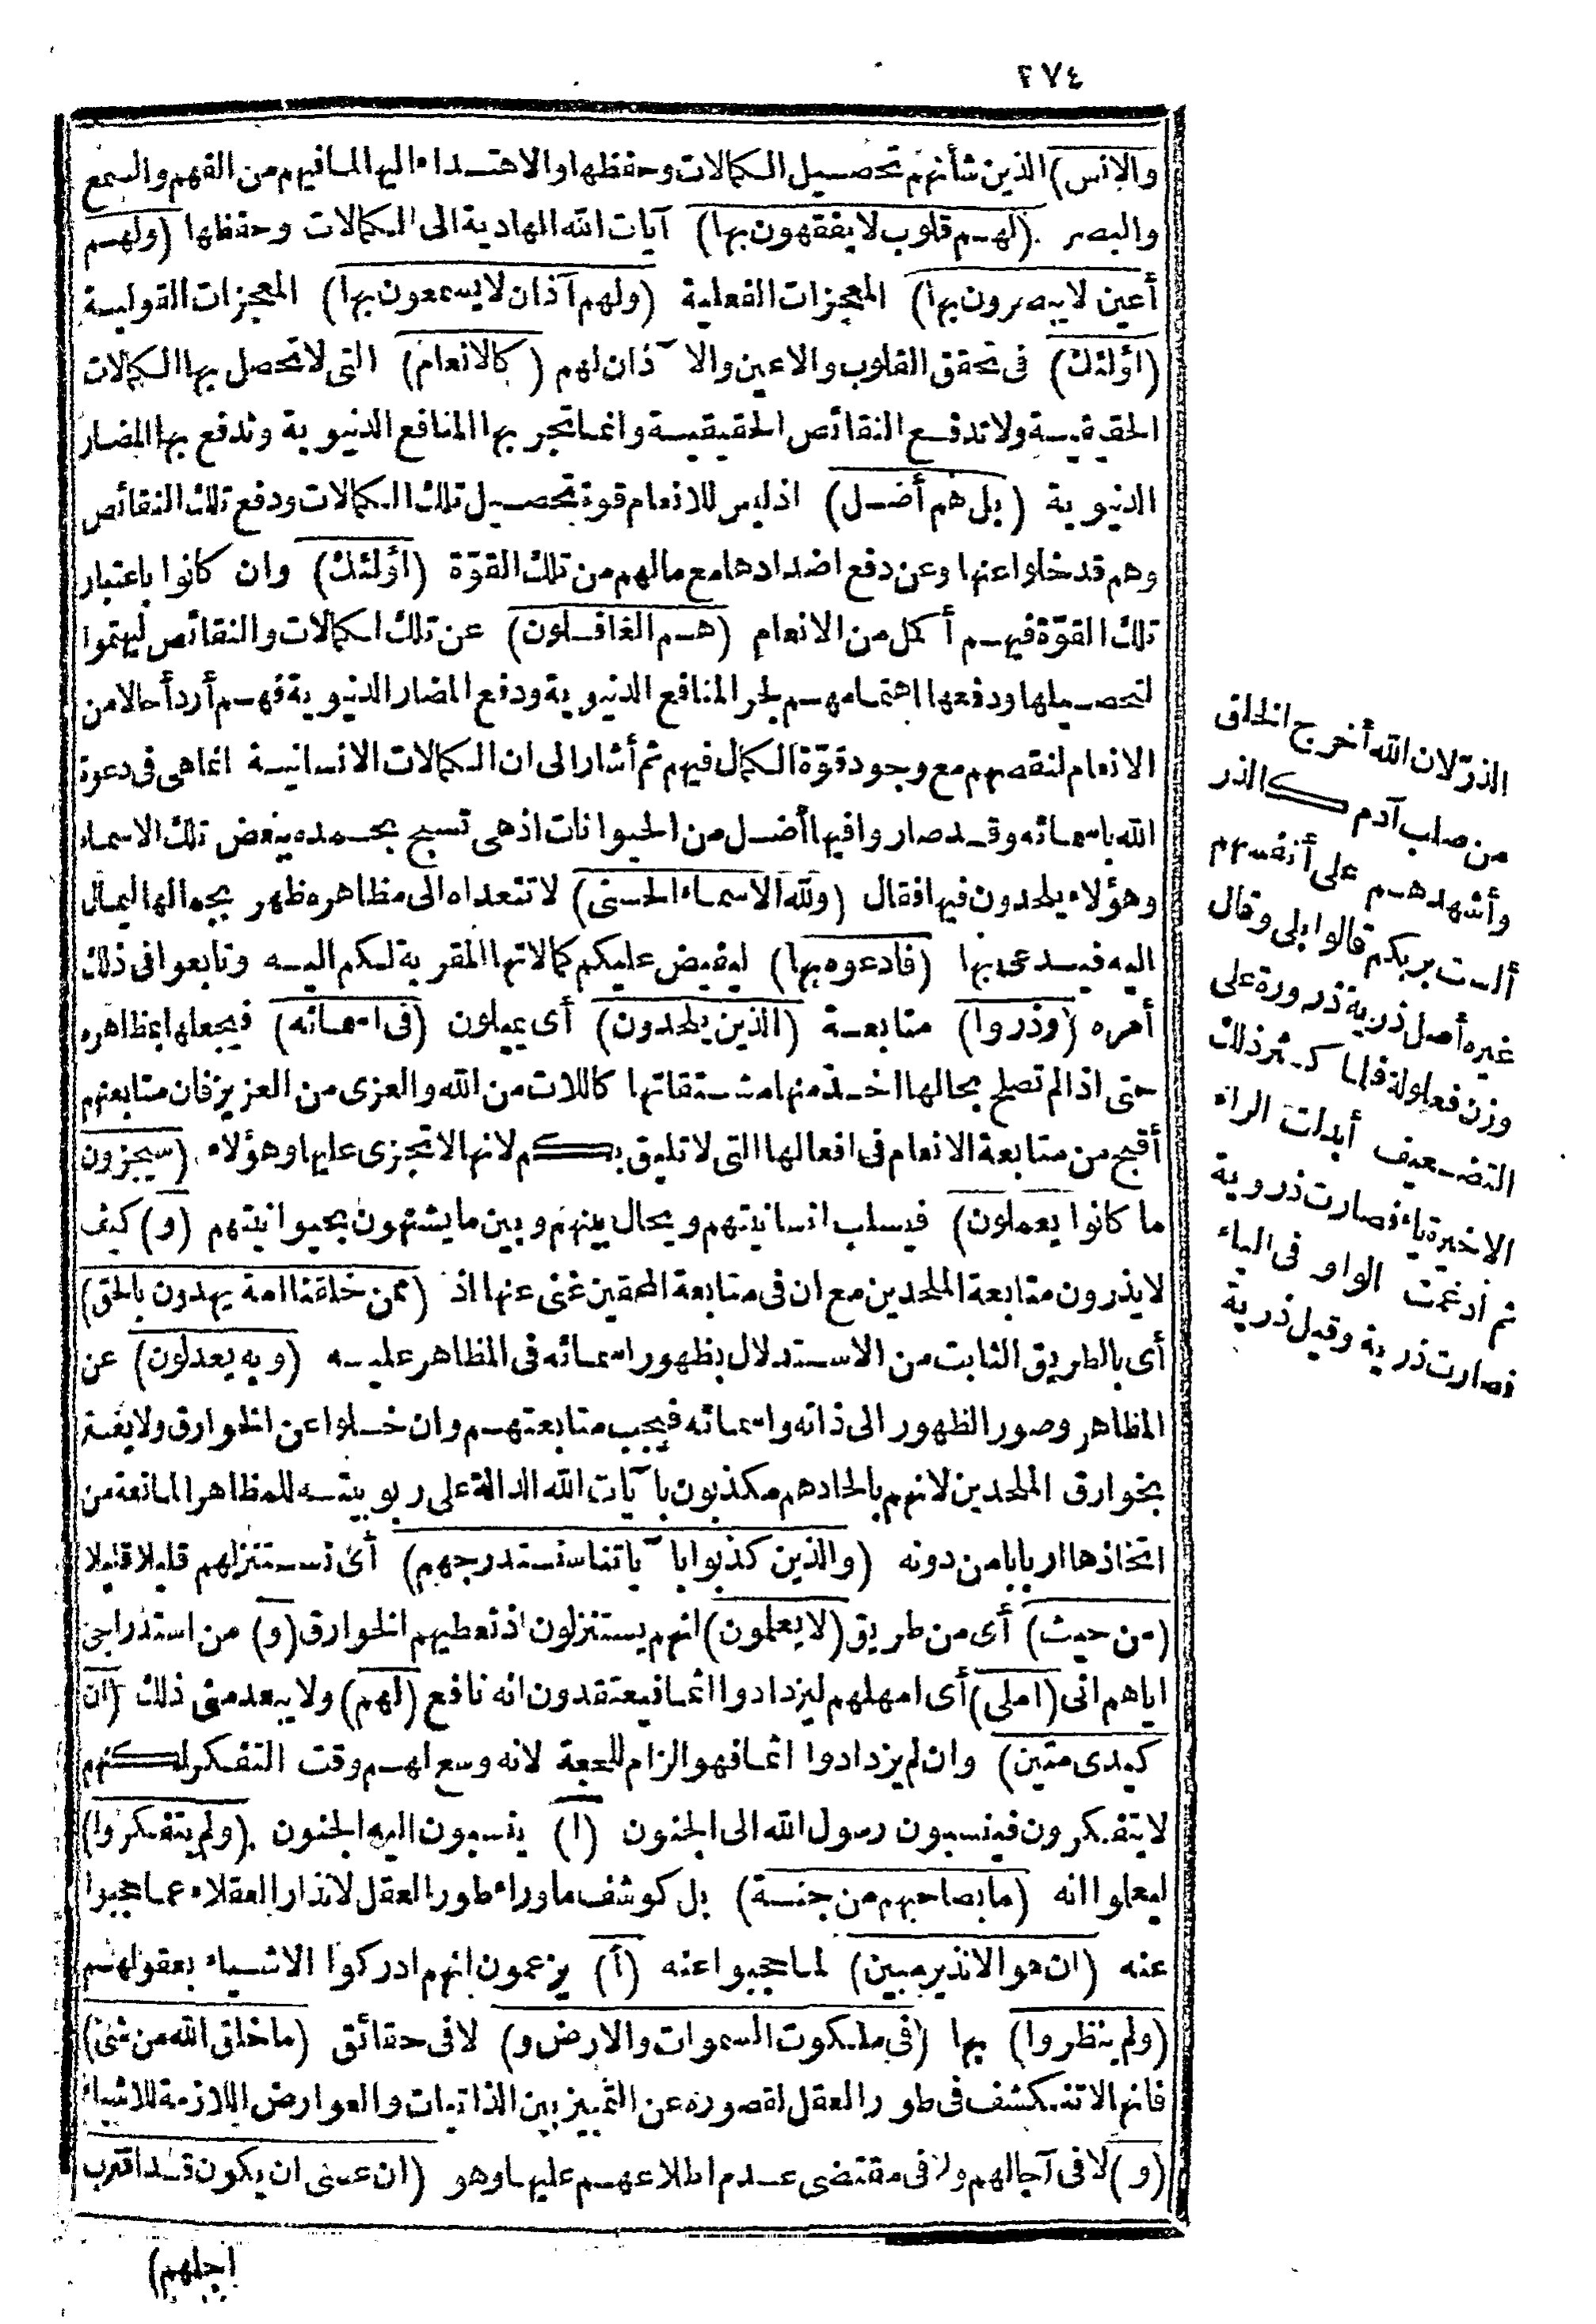 ٢٧٤
والانس) الذين شأنهم تحصيل الكمالات وحفظها والاهتداء اليها لما فيهم من الفهم والسمع
والبصر (لهم قلوب لا يفقهون بها) آيات الله الهادية الى الكمالات وحفظها (ولهم
أعين لا يبصرون بها) المعجزات الفعلية (ولهم آذان لا يسمعون بها) المعجزات القولية
(أولئك) فى تحقق القلوب والاعين والآذان لهم (كالانعام) التى لا تحصل بها الكمالات
الحقيقية ولا تدفع النقائص الحقيقية وانما تجر بها المنافع الدنيوية وتدفع بها المضار
الدنيوية (بل هم أضل) اذ ليس للانعام قوة تحصيل تلك الكمالات ودفع تلك النقائص
وهم قد خلوا عنها وعن دفع اضدادها مع ما لهم من تلك القوّة (أولئك) وان كانوا باعتبار
تلك القوّة فيهم أكمل من الانعام (هم الغافلون) عن تلك الكمالات والنقائص ليهتموا
لتحصيلها ودفعها اهتمامهم لجر المنافع الدنيوية ودفع المضار الدنيوية فهم أردأ حالا من
الانعام لنقصهم مع وجود قوّة الكمال فيهم ثم أشار الى ان الكمالات الانسانية انما هى فى دعوة
الله باسمائه وقد صاروا فيها أضل من الحيوانات اذ هى تسبح بحمده ببعض تلك الاسماء
وهؤلاء يلحدون فيها فقال (ولله الاسماء الحسنى) لا تتعداه الى مظاهره ظهر بجمالها ليمال
اليه فيدعى بها (فادعوه بها) ليفيض عليكم كمالاتها المقربة لكم اليه وتابعوا فى ذلك
أمره (وذروا) متابعة (الذين يلحدون) أى يميلون (فى اسمائه) فيجعلها لمظاهره
حتى اذا لم تصلح بحالها اخذ منها مشتقاتها كاللات من الله والعزى من العزيز فان متابعتهم
أقبح من متابعة الانعام فى افعالها التى لا تليق بكم لانها لا تجزى عليها وهؤلاء (سيجزون
ما كانوا يعملون) فيسلب انسانيتهم ويحال بينهم وبين ما يشتهون بحيوانيتهم (و) كيف
لا يذرون متابعة الملحدين مع ان فى متابعة المحقين غنى عنها اذ (ممن خلقنا امة يهدون بالحق)
أى بالطريق الثابت من الاستدلال بظهور اسمائه فى المظاهر عليه (وبه يعدلون) عن
المظاهر وصور الظهور الى ذاته واسمائه فيجب متابعتهم وان خلوا عن الخوارق ولا يغتر
بخوارق الملحدين لانهم بالحادهم مكذبون بآيات الله الدالة على ربوبيته للمظاهر المانعة من
اتخاذها اربابا من دونه (والذين كذبوا بآياتنا سنستدرجهم) أى نستنزلهم قليلا قليلا
(من حيث) أى من طريق (لا يعلمون) انهم يستنزلون اذ نعطيهم الخوارق (و) من استدراجى
اياهم انى (املى) أى امهلهم ليزدادوا اثما فيعتقدون انه نافع (لهم) ولا يبعد منى ذلك (ان
كيدى متين) وان لم يزدادوا اثما فهو الزام للحجة لانه وسع لهم وقت التفكر لكنهم
لا يتفكرون فينسبون رسول الله الى الجنون (ا) ينسبون اليه الجنون (ولم يتفكروا)
ليعلموا انه (ما بصاحبهم من جنة) بل كوشف ما وراء طور العقل لانذار العقلاء عما حجبوا
عنه (ان هو الا نذير مبين) لما حجبوا عنه (أ) يزعمون انهم ادركوا الاشياء بعقولهم
(ولم ينظروا) بها (فى ملكوت السموات والارض و) لا فى حقائق (ما خلق الله من شئ)
فانها لا تنكشف فى طور العقل لقصوره عن التمييز بين الذاتيات والعوارض اللازمة للاشياء
(و) لا فى آجالهم ولا فى مقتضى عدم اطلاعهم عليها وهو (ان عسى ان يكون قد اقترب
اجلهم)
الذرّ لان الله أخرج الخلق
من صلب آدم كالذر
وأشهدهم على أنفسهم
ألست بربكم قالوا بلى وقال
غيره أصل ذرية ذرورة على
وزن فعلولة فلما كثر ذلك
التضعيف أبدلت الراء
الاخيرة ياء فصارت ذروية
ثم أدغمت الواو فى الياء
فصارت ذرية وقيل ذرية